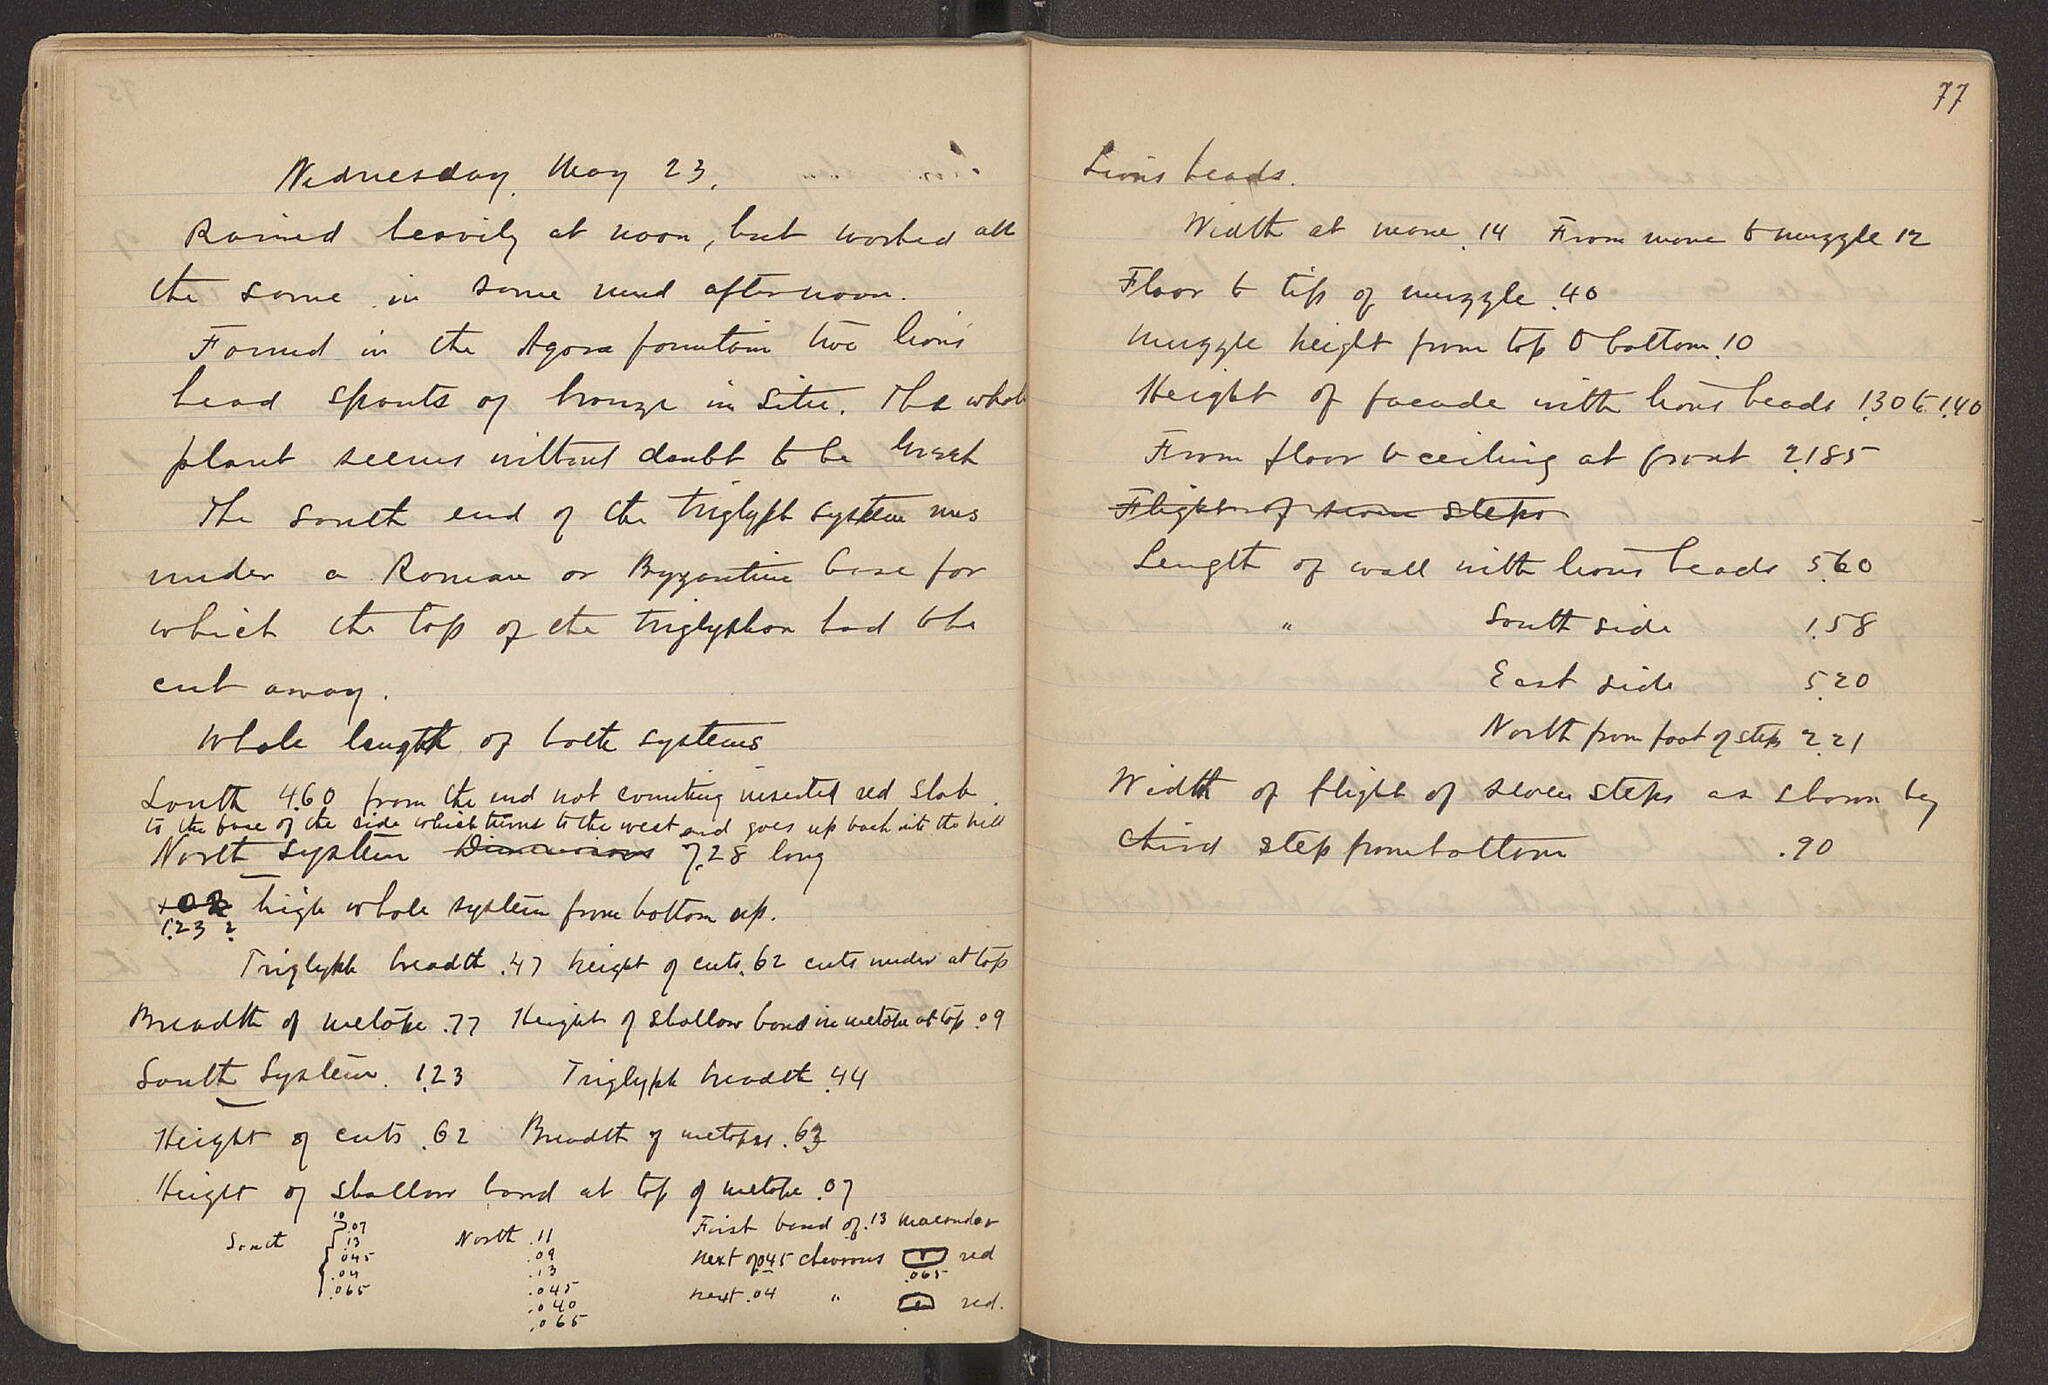 Wednesday, May 23.
Rained heavily at noon, but worked all
the same in some mud afternoon.
Found in the Agora fountain two lion's
head spouts of bronze in situ. The whole
plant seems without doubt to be Greek
The south end of the triglyph system was
under a Roman or Byzantine base for
which the top of the triglyphon had to be
cut away.
Whole length of both systems
South 4.60 from the end not counting inserted red slab.
to the base of the side which turns to the west and goes up back into the hill
North System Dimensions 7.28 long
1.02 high whole system from bottom up.
1.23 ?
Triglyph breadth .47 height of cuts .62 cuts under at top
Breadth of metope .77 Height of shallow band in metope at top .09
South System. 1.23 Triglyph breadth .44
Height of cuts .62 Breadth of metopes .63
Height of shallow band at top of metope .07
South
10
.07
.13
.045
.04
.065
North .11
.09
.13
.045
.040
.065
First band of .13 maeander
next of .045 chevrons red
.065
next .04 " red.
77
Lions heads.
Width at mane .14 From mane to muzzle 12
Floor to tip of muzzle .40
Muzzle height from top to bottom .10
Height of facade with lions heads 1.30 to 1.40
From floor to ceiling at front 2.185
Flight of seven steps
Length of wall with lions heads 5.60
" South side 1.58
East side 5.20
North from foot of steps 2.21
Width of flight of seven steps as shown by
third step from bottom .90